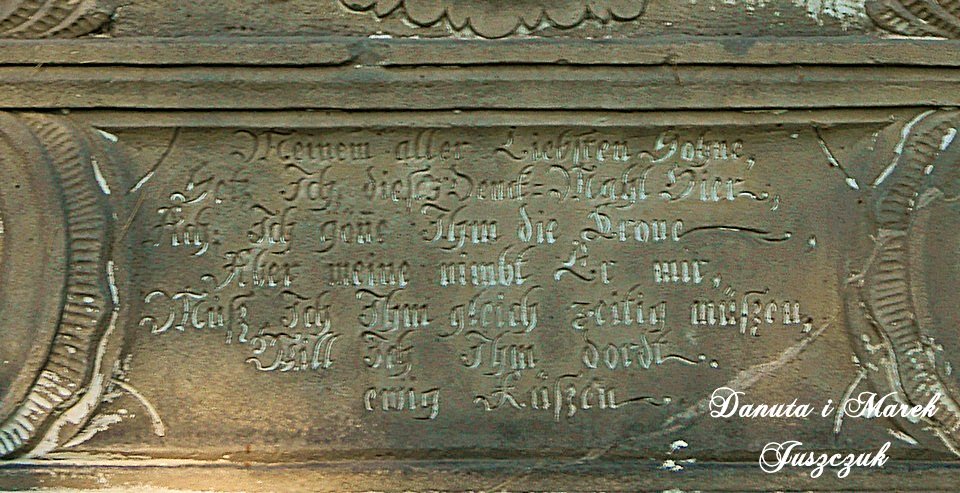 Meinem aller Liebsten Sohne,
Setz Ich dießz Denck=Mahl Hier,
Ach: Ich göñe Ihm die Krone,
Aber meine nimbt Er mir,
Muß Ich Ihm gleich zeitig müßen,
Will Ich Ihm dordt.
ewig Küßen
Danuta i Marek
Juszczuk